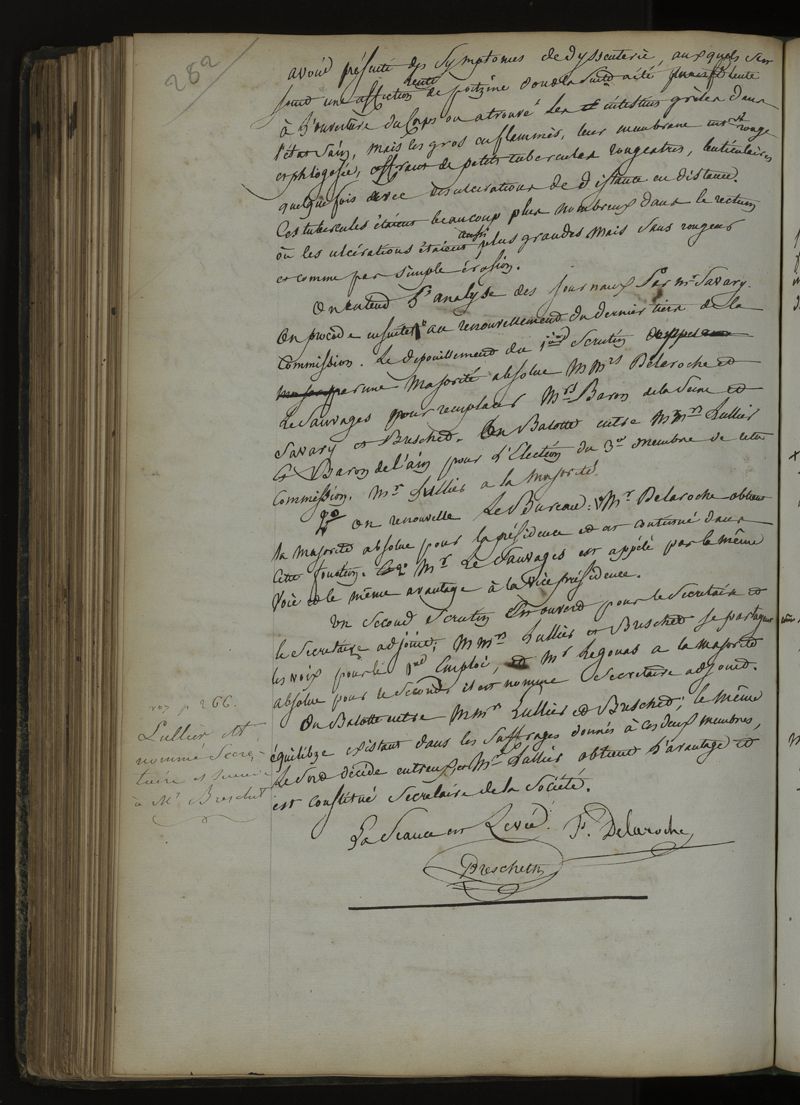 282
avoir présenté des symptomes de dyssenterie, auxquels se
joint une affection lente de poitrine dont la suite a été funeste
à l'ouverture du corps on a trouvé les intestins grêles dans
l'état sain, mais les gros enflammés, leur membrane int.re rouge
et phlogosée, offrant de petits tubercules rougeatres, lenticulaires
quelque fois avec des ulcérations de distance en distance.
Ces tubercules étaient beaucoup plus nombreux dans le rectum
où les ulcérations étaient aussi plus grandes mais sans rougeur
et comme par simple érosion.
On entend l'analyse des journaux par mr Savary.
On procède ensuite au renouvellement du dernier tiers de la
Commission. Le dépouillement du 1er Scrutin
par une majorité absolue MMrs Delaroche et
Le Sauvages pour remplacer Mrs Baron de la Seine et
Savary et Buschet. On Balotte entre MMrs Lullier
et Baron de l'ain pour l'Election du 3e membre de cette
Commission. Mr Lullier a la majorité.
2o On renouvelle Le Bureau. Mr Delaroche obtient
la majorité absolue pour la présidence et est continué dans
cette fonction. Mr Le Sauvages est appélé par la même
voie et le même avantage à la vice présidence.
Un Second Scrutin est ouvert pour le Secretaire et
le Secretaire adjoint; MMrs Lullier et Buschet se partagent
les voix pour le 1er Emploi, et Mr Legouas a la majorité
absolue pour le second; il est nommé Secretaire adjoint.
On Balotte entre MMrs Lullier et Buschet; le même
équilibre existant dans les Suffrages donnés à ces deux membres,
Le Sort décide entreux et Mr Lullier obtient l'avantage et
est constitué Secretaire de la Société.
La Séance est Levée. F. Delaroche
Breschet
voy p 266.
Lullier est
nommé Secre-
taire et succède
à Mr Breschet